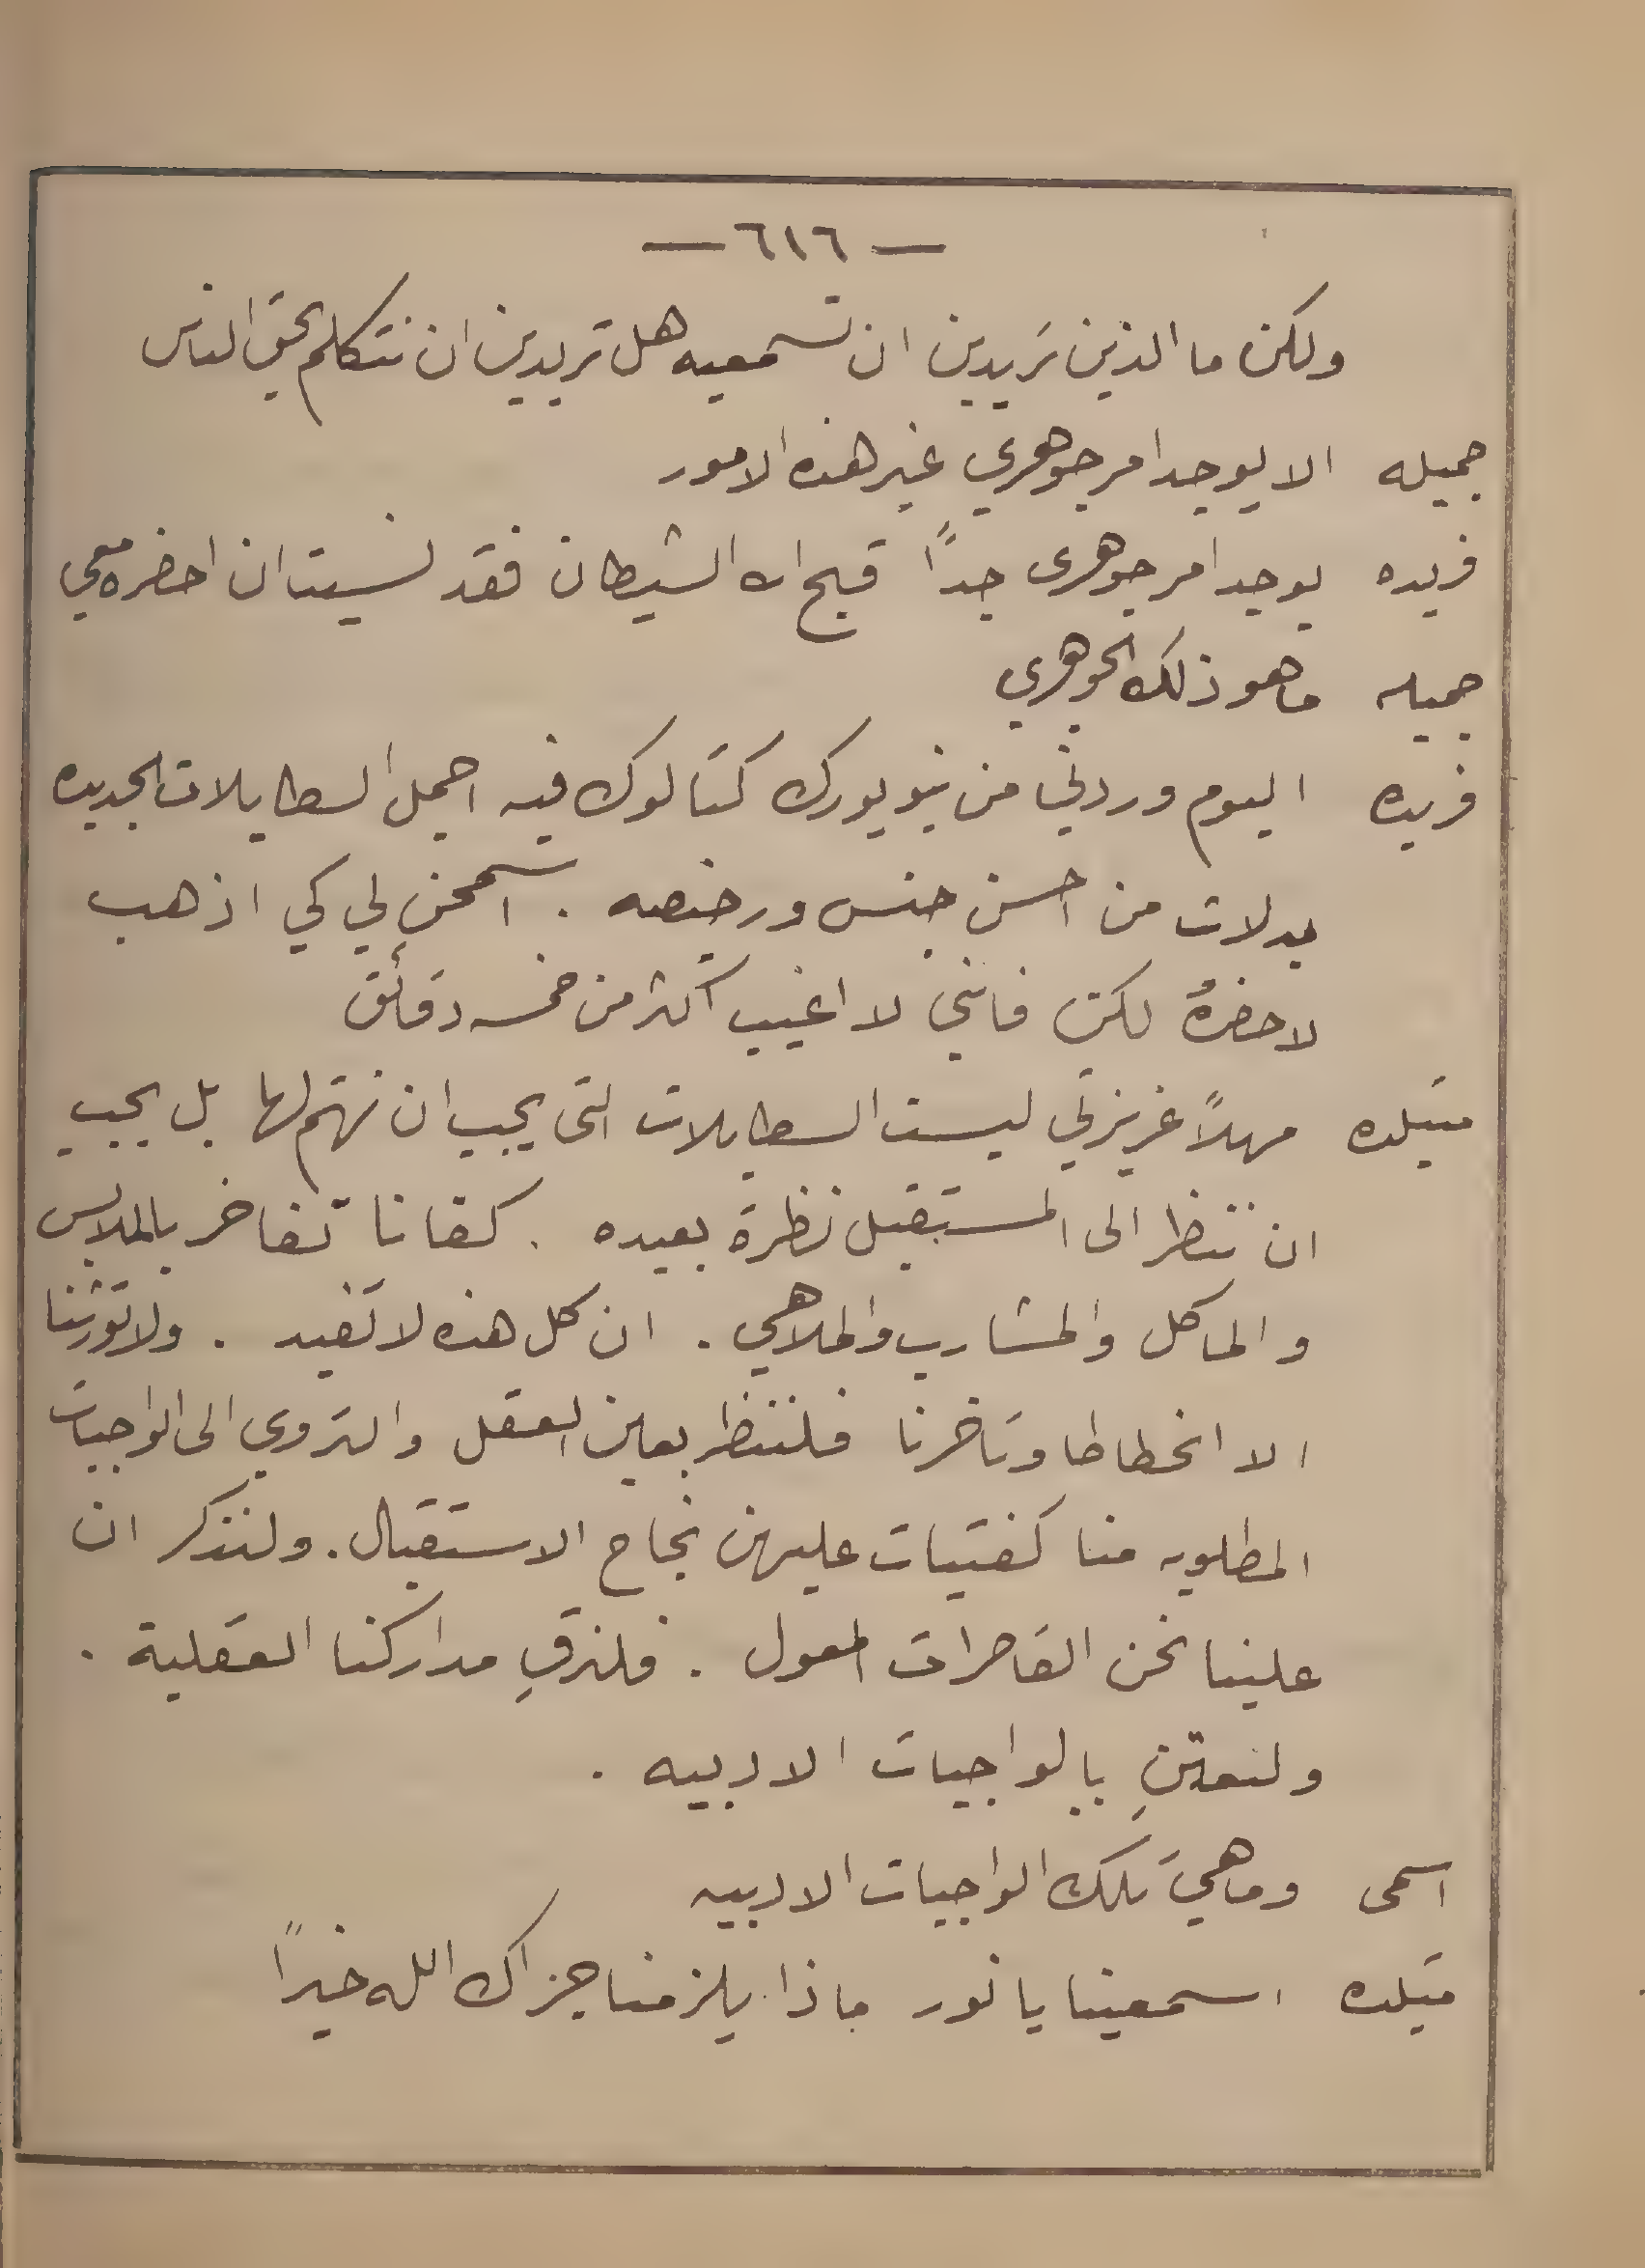 — ٦١٦ —
ولكن ما الذين تريدين ان تسمعيه هل تريدين ان نتكلم بحق الناس
جميله الا يوجد امر جوهري غير هذه الامور
فريده يوجد امر جوهرى جداً قبح الله الشيطان فقد نسيت ان احضره معي
جميله ما هو ذلك الجوهري
فريده اليوم وردني من نيويورك كتالوك فيه اجمل السطايلات الجديده
بدلات من احسن جنس ورخيصه . اسمحن لي كي اذهب
لاحضرهُ لكن فانني لا اغيب اكثر من خمسه دقائق
متيلده مهلاً عزيزتي ليست السطايلات التى يجب ان نهتم لها بل يجب
ان ننظر الى المستقبل نظرة بعيده . كفانا تفاخر بالملابس
والماكل والمشارب والملاهي . ان كل هذه لا تفيد . ولا تورثنا
الا انحطاطا وتاخرنا فلننظر بعين العقل والتروي الى الواجبات
المطلوبه منا كفتيات عليهن نجاح الاستقبال . ولنذكر ان
علينا نحن القاصرات المعول . فلنرقِ مداركنا العقلية .
ولنعتنِ بالواجبات الادبيه .
اسمى وما هي تلك الواجبات الادبيه
متيلده اسمعينا يا نور ماذا يلزمنا جزاك الله خيراً